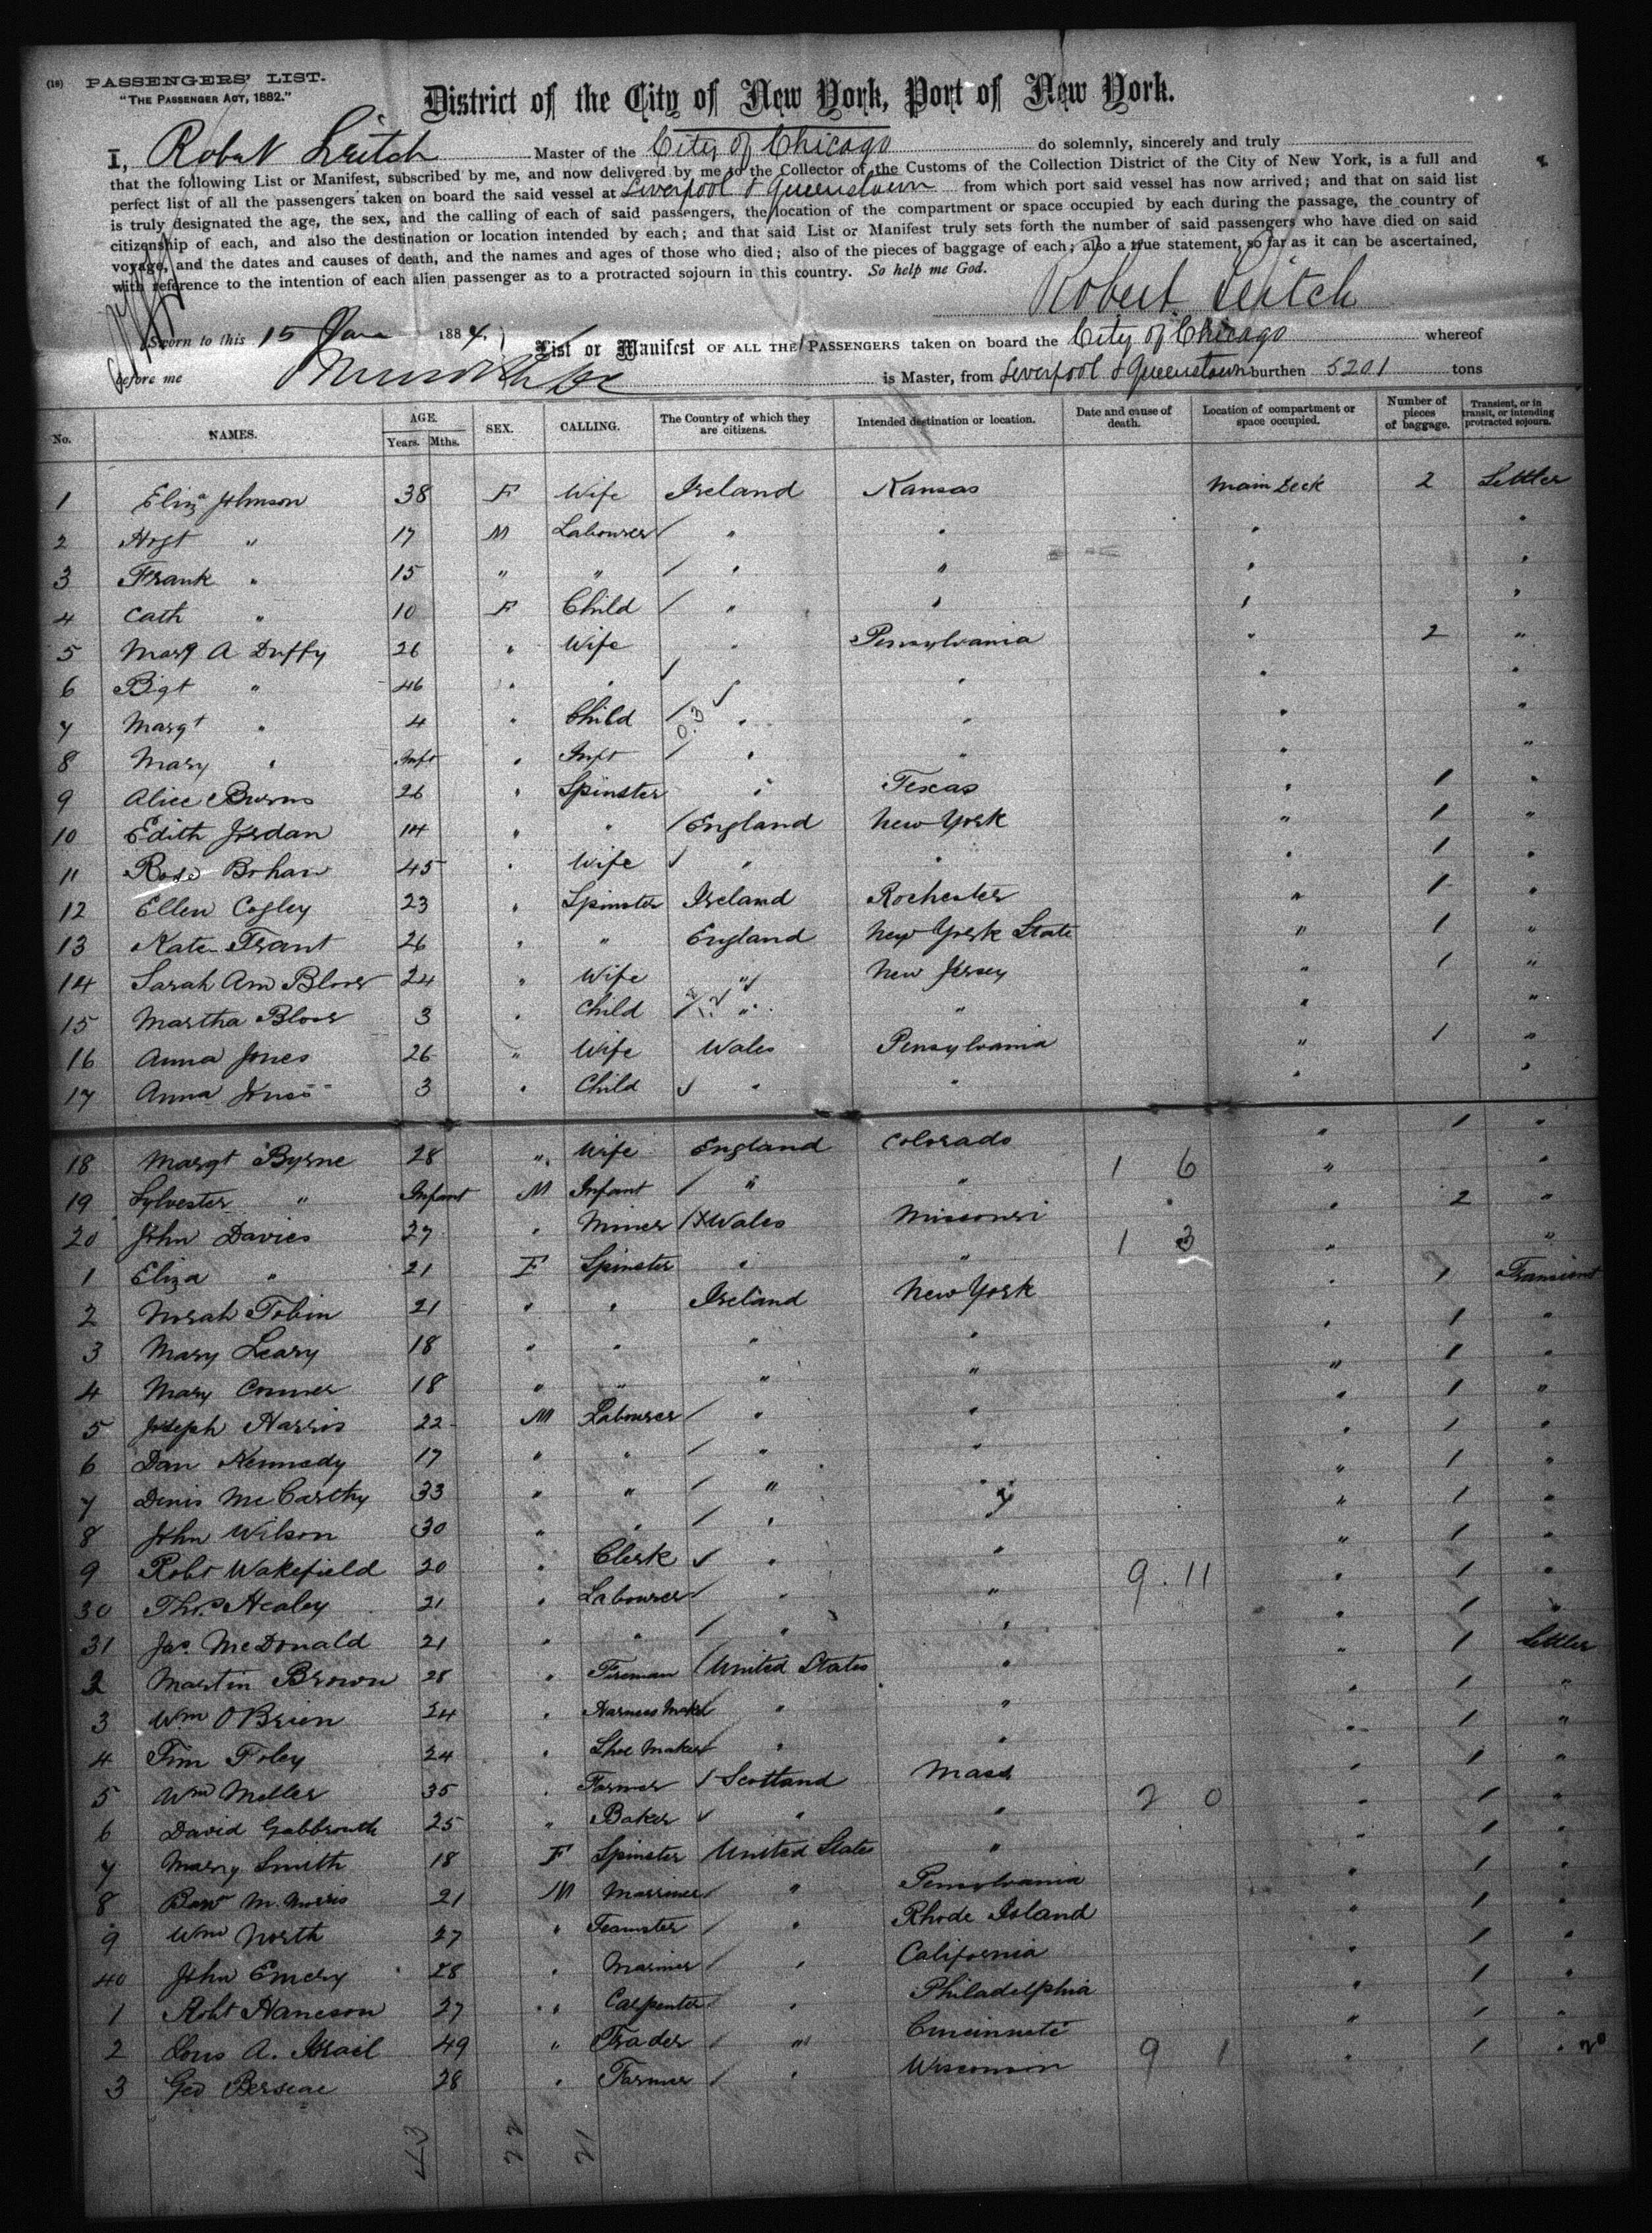 (16) PASSENGERS' LIST.
"THE PASSENGER ACT, 1882."
District of the City of New York, Port of New York.
I, Robert Leitch Master of the City of Chicago do solemnly, sincerely and truly
that the following List or Manifest, subscribed by me, and now delivered by me to the Collector of the Customs of the Collection District of the City of New York, is a full and
perfect list of all the passengers taken on board the said vessel at Liverpool & Queenstown from which port said vessel has now arrived; and that on said list
is truly designated the age, the sex, and the calling of each of said passengers, the location of the compartment or space occupied by each during the passage, the country of
citizenship of each, and also the destination or location intended by each; and that said List or Manifest truly sets forth the number of said passengers who have died on said
voyage, and the dates and causes of death, and the names and ages of those who died; also of the pieces of baggage of each; also a true statement, so far as it can be ascertained,
with reference to the intention of each alien passenger as to a protracted sojourn in this country. So help me God.
Robert Leitch
Sworn to this 15 Jan 1884
List or Manifest OF ALL THE PASSENGERS taken on board the City of Chicago whereof
before me is Master, from Liverpool & Queenstown burthen 5201 tons
No. NAMES. AGE. Years. Mths. SEX. CALLING. The Country of which they are citizens. Intended destination or location. Date and cause of death. Location of compartment or space occupied. Number of pieces of baggage. Transient, or in transit, or intending protracted sojourn.
1 Eliza Johnson 38 F Wife Ireland Kansas Main Deck 2 Settler
2 " 17 M Labourer " " " "
3 Frank " 15 " " " " " "
4 Cath " 10 F Child " " " "
5 Marg A Duffy 26 " Wife " Pensylvania " 2 "
6 Bigt " 46 " " " " "
7 Margt " 4 " Child 0.3 " " " "
8 Mary " Inft " Inft " " " "
9 Alice Burns 26 " Spinster " Texas " 1 "
10 Edith Jordan 14 " " England New York " 1 "
11 Rose Bohan 45 " Wife " " " 1 "
12 Ellen Cogley 23 " Spinster Ireland Rochester " 1 "
13 Kate Trant 26 " " England New York State " 1 "
14 Sarah Ann Bloor 24 " Wife " New Jersey " 1 "
15 Martha Bloor 3 " Child " " " "
16 Anna Jones 26 " Wife Wales Pensylvania " 1 "
17 Anna Jones 3 " Child " " " "
18 Margt Byrne 28 " Wife England Colorado " 1 "
19 Sylvester " Infant M Infant " " 1 6 " "
20 John Davies 27 " Miner Wales Missouri " 2 "
1 Eliza " 21 F Spinster " " 1 3 " "
2 Norah Tobin 21 " " Ireland New York " 1 Transient
3 Mary Leary 18 " " " " " 1 "
4 Mary Conner 18 " " " " " 1 "
5 Joseph Harris 22 M Labourer " " " 1 "
6 Dan Kennedy 17 " " " " " 1 "
7 Denis McCarthy 33 " " " " " 1 "
8 John Wilson 30 " " " " " 1 "
9 Robt Wakefield 20 " Clerk " " " 1 "
30 Thos Healey 21 " Labourer " " 9.11 " 1 "
31 Jas. McDonald 21 " " " " " 1 "
2 Martin Brown 28 " Fireman United States " " 1 Settler
3 Wm O'Brien 24 " Harness Maker " " " 1 "
4 Tim Foley 24 " Shoe Maker " " " 1 "
5 Wm Miller 35 " Farmer Scotland Mass " 1 "
6 David 25 " Baker " " 2 0 " 1 "
7 Marry Smith 18 F Spinster United States " " 1 "
8 M. Morris 21 M Marriner " Pensylvania " 1 "
9 Wm North 27 " Teamster " Rhode Island " 1 "
40 John Emery 28 " Mariner " California " 1 "
1 Robt Haneson 27 " Carpenter " Philadelphia " 1 "
2 A. Israil 49 " Trader " Cincinnati " 1 "
3 Geo 28 " Farmer " Wisconsin 9 1 " 1 " 20
43 22 21